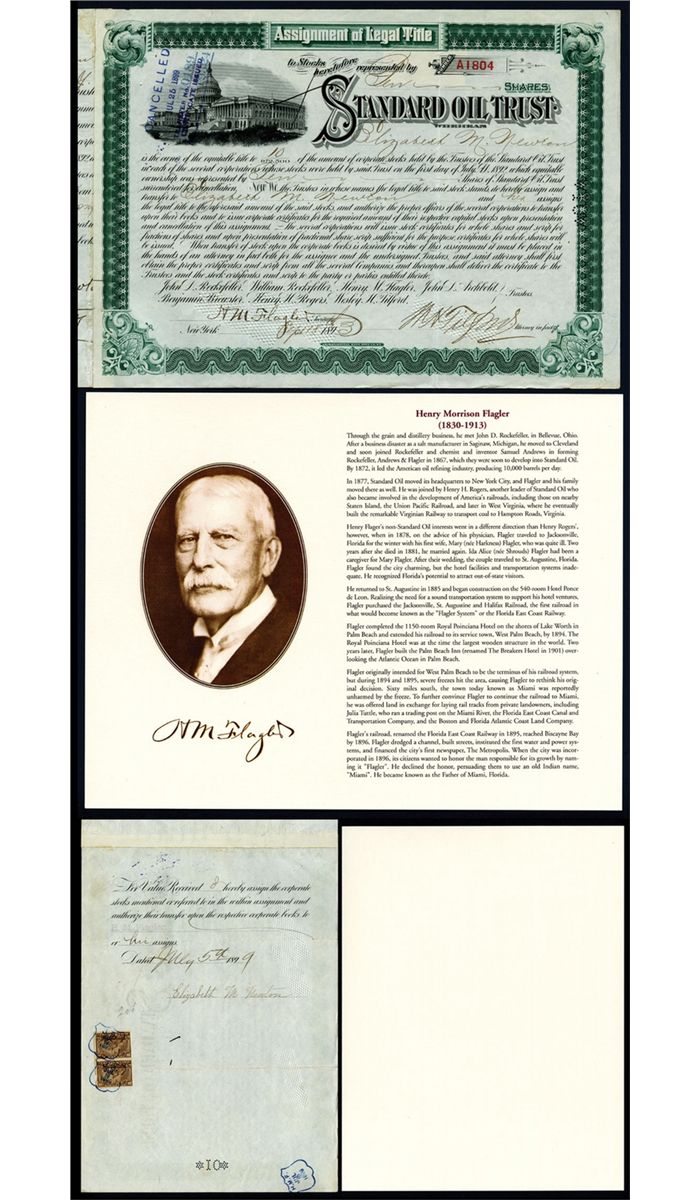 Assignment of Legal Title
to Stocks
heretofore represented by
A1804
Ten
SHARES
CANCELLED
JUL 25 1899
STANDARD OIL TRUST
WHEREAS
Elizabeth M. Newton
is the owner of the equitable title to 10/972,500 of the amount of corporate stocks held by the Trustees of the Standard Oil Trust
in each of the several corporations whose stocks were held by said Trust on the first day of July A.D. 1892, which equitable
ownership was represented by Ten Shares of Standard Oil Trust
surrendered for cancellation. Now We the Trustees in whose names the legal title to said stock stands do hereby assign and
transfer to Elizabeth M. Newton and her assigns
the legal title to the aforesaid amount of the said stocks, and authorize the proper officers of the several corporations to transfer
upon their books and to issue corporate certificates for the required amount of their respective capital stocks upon presentation
and cancellation of this assignment. The several corporations will issue stock certificates for whole shares and scrip for
fractions of shares and upon presentation of fractional share scrip sufficient for the purpose, certificates for whole shares will
be issued. When transfer of stock upon the corporate books is desired by virtue of this assignment it must be placed in
the hands of an attorney in fact both for the assignee and the undersigned Trustees, and said attorney shall first
obtain the proper certificates and scrip from all the several Companies and thereupon shall deliver the certificate to the
Trustees and the stock certificates and scrip to the party or parties entitled thereto.
John D. Rockefeller, William Rockefeller, Henry M. Flagler, John D. Archbold,
Benjamin Brewster, Henry H. Rogers, Wesley H. Tilford,
Trustees
H M Flagler
New York Sept 1893
W. H. Tilford Attorney in fact
Henry Morrison Flagler
(1830-1913)
Through the grain and distillery business, he met John D. Rockefeller, in Bellevue, Ohio.
After a business disaster as a salt manufacturer in Saginaw, Michigan, he moved to Cleveland
and soon joined Rockefeller and chemist and inventor Samuel Andrews in forming
Rockefeller, Andrews & Flagler in 1867, which they were soon to develop into Standard Oil.
By 1872, it led the American oil refining industry, producing 10,000 barrels per day.
In 1877, Standard Oil moved its headquarters to New York City, and Flagler and his family
moved there as well. He was joined by Henry H. Rogers, another leader of Standard Oil who
also became involved in the development of America's railroads, including those on nearby
Staten Island, the Union Pacific Railroad, and later in West Virginia, where he eventually
built the remarkable Virginian Railway to transport coal to Hampton Roads, Virginia.
Henry Flager's non-Standard Oil interests went in a different direction than Henry Rogers',
however, when in 1878, on the advice of his physician, Flagler traveled to Jacksonville,
Florida for the winter with his first wife, Mary (née Harkness) Flagler, who was quite ill. Two
years after she died in 1881, he married again. Ida Alice (née Shrouds) Flagler had been a
caregiver for Mary Flagler. After their wedding, the couple traveled to St. Augustine, Florida.
Flagler found the city charming, but the hotel facilities and transportation systems inade-
quate. He recognized Florida's potential to attract out-of-state visitors.
He returned to St. Augustine in 1885 and began construction on the 540-room Hotel Ponce
de Leon. Realizing the need for a sound transportation system to support his hotel ventures,
Flagler purchased the Jacksonville, St. Augustine and Halifax Railroad, the first railroad in
what would become known as the "Flagler System" or the Florida East Coast Railway.
Flagler completed the 1150-room Royal Poinciana Hotel on the shores of Lake Worth in
Palm Beach and extended his railroad to its service town, West Palm Beach, by 1894. The
Royal Poinciana Hotel was at the time the largest wooden structure in the world. Two
years later, Flagler built the Palm Beach Inn (renamed The Breakers Hotel in 1901) over-
looking the Atlantic Ocean in Palm Beach.
Flagler originally intended for West Palm Beach to be the terminus of his railroad system,
but during 1894 and 1895, severe freezes hit the area, causing Flagler to rethink his orig-
inal decision. Sixty miles south, the town today known as Miami was reportedly
unharmed by the freeze. To further convince Flagler to continue the railroad to Miami,
he was offered land in exchange for laying rail tracks from private landowners, including
Julia Tuttle, who ran a trading post on the Miami River, the Florida East Coast Canal and
Transportation Company, and the Boston and Florida Atlantic Coast Land Company.
Flagler's railroad, renamed the Florida East Coast Railway in 1895, reached Biscayne Bay
by 1896. Flagler dredged a channel, built streets, instituted the first water and power sys-
tems, and financed the city's first newspaper, The Metropolis. When the city was incor-
porated in 1896, its citizens wanted to honor the man responsible for its growth by nam-
ing it "Flagler". He declined the honor, persuading them to use an old Indian name,
"Miami". He became known as the Father of Miami, Florida.
H M Flagler
For Value Received I hereby assign the corporate
stocks mentioned or referred to in the within assignment and
authorize their transfer upon the respective corporate books to
or her assigns
Dated July 5th 1899
Elizabeth M Newton
*10*